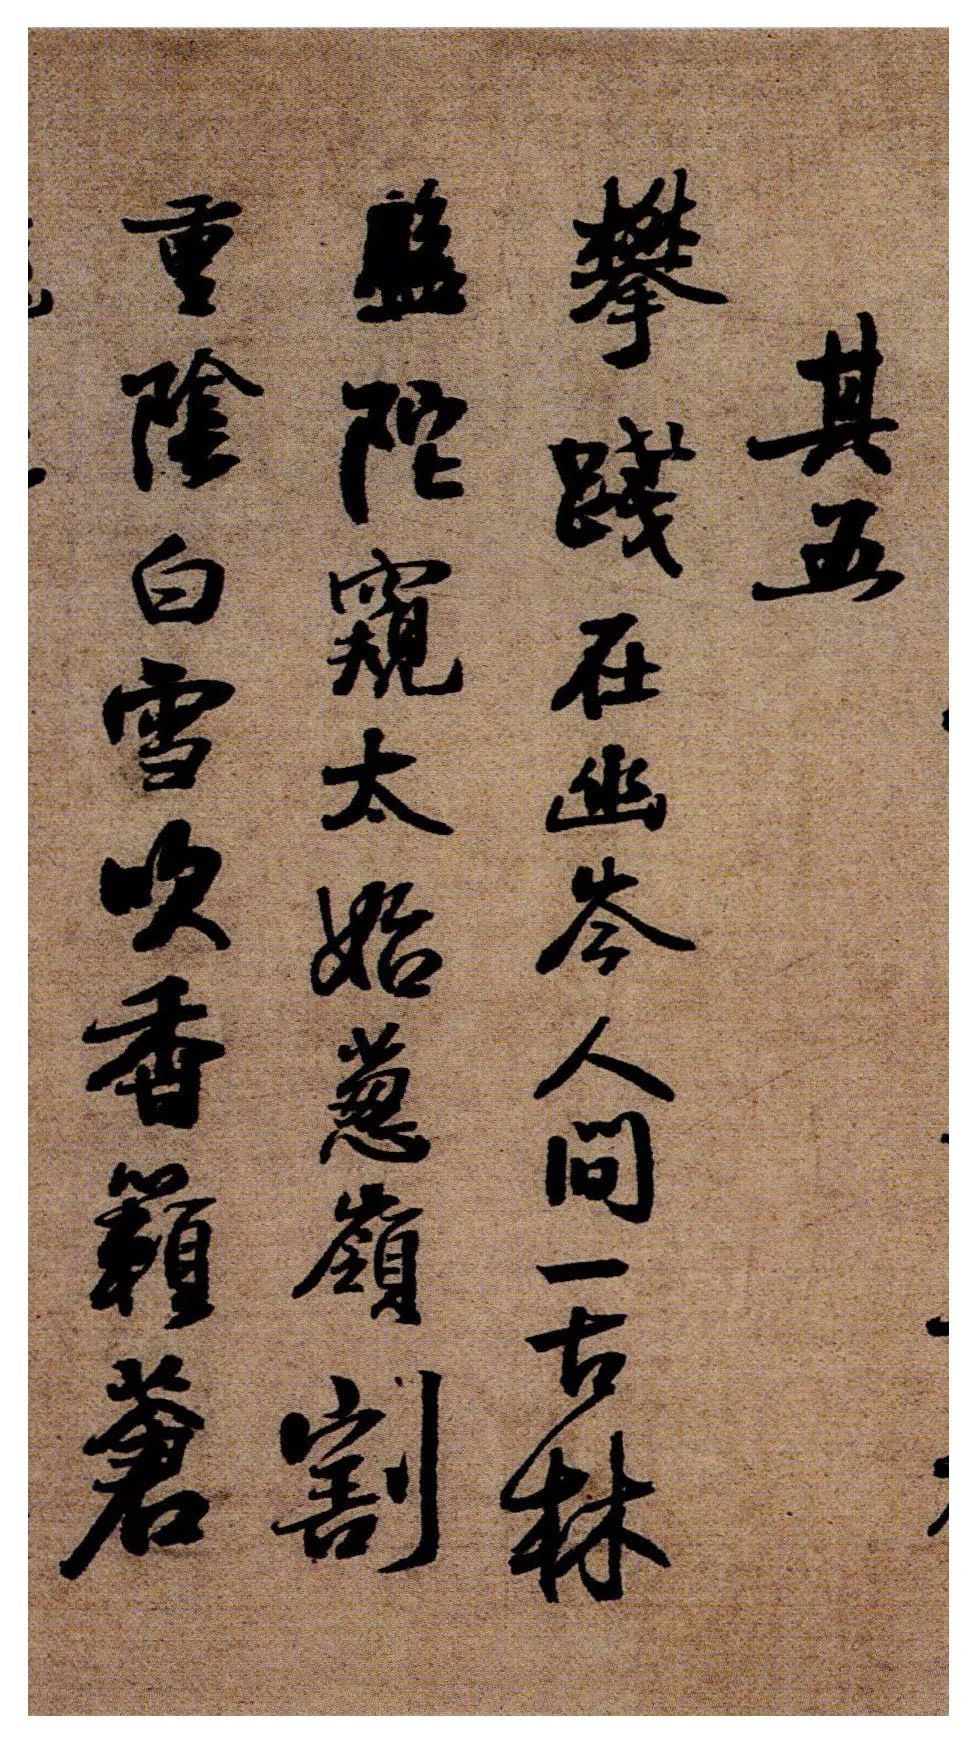 其五
攀踐在幽岑人間一古林
盤陀窺太始葱嶺割
重陰白雪吹香籟蒼